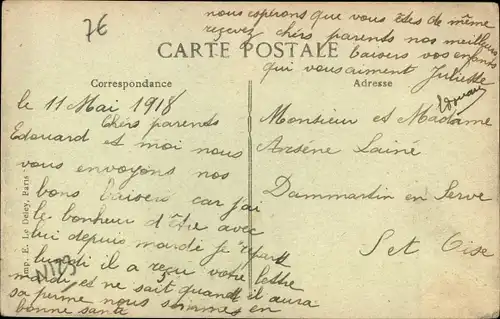 7€
CARTE POSTALE
Correspondance
le 11 Mai 1918
Chérs parents
Edouard et moi nous
vous envoyons nos
bons baisers car j'ai
le bonheur d'être avec
lui depuis mardi je repart
lundi il a reçu votre lettre
mardi et ne sait quand il aura
sa perme nous sommes en
bonne santé
nous espérons que vous êtes de même
reçevez chérs parents nos meilleurs
baisers vos enfants
qui vous aiment Juliette
Edouard
Adresse
Monsieur et Madame
Arséne Lainé
Dammartin en Serve
Set Oise
Imp. E. Le Deley, Paris